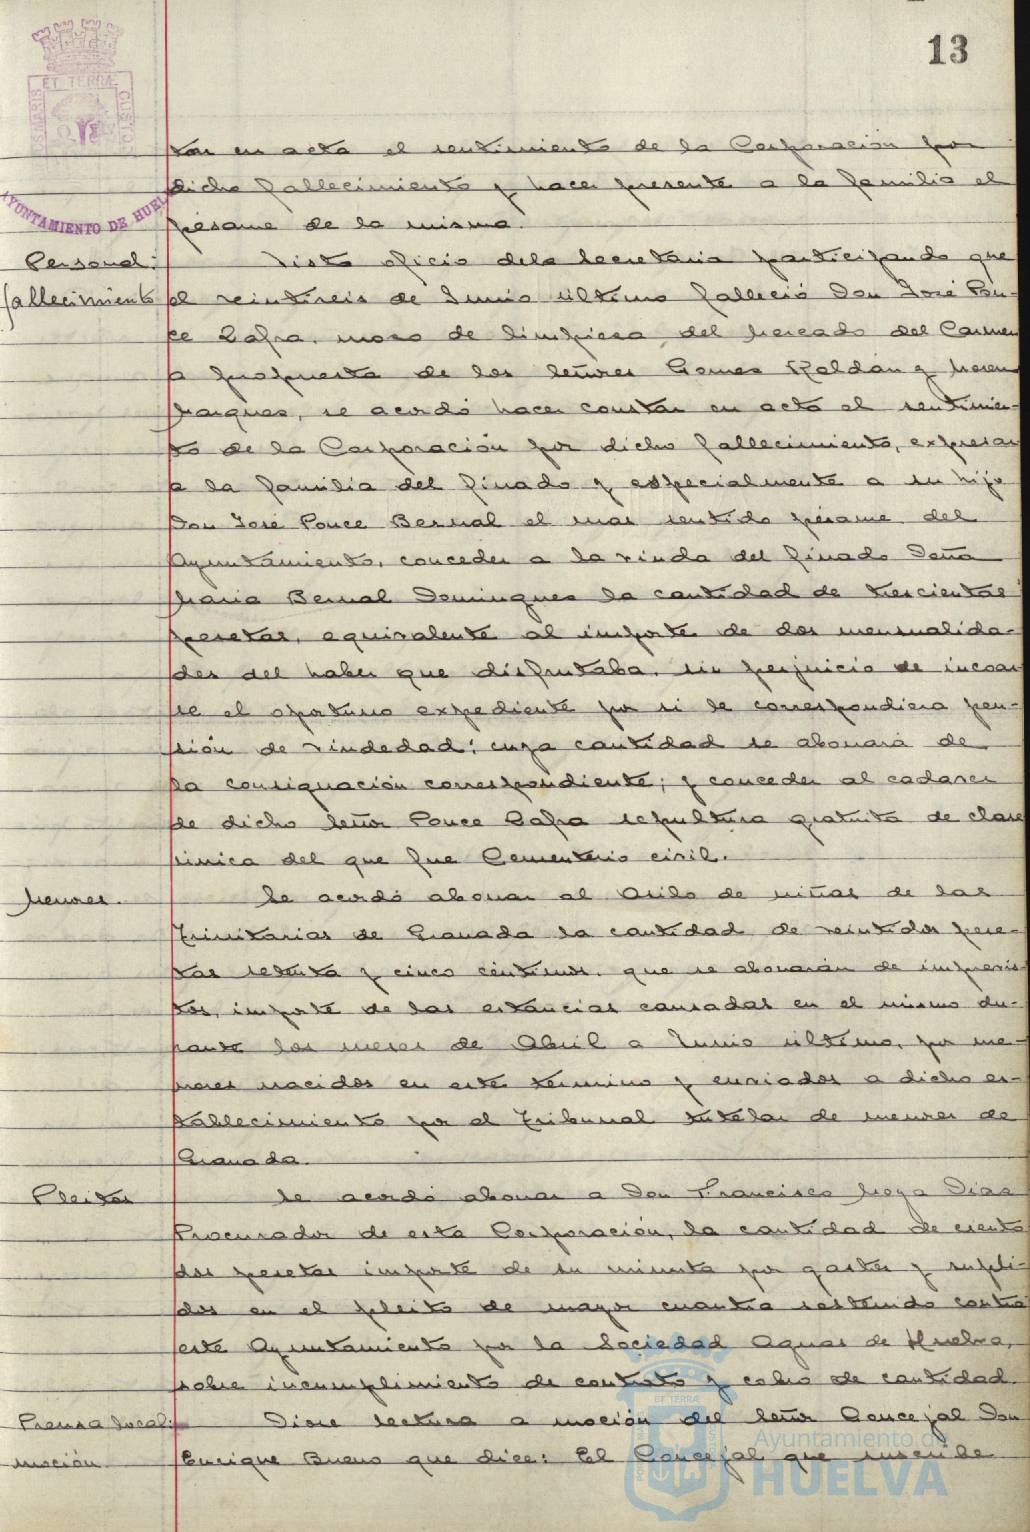 13
ET TERRÆ
AYUNTAMIENTO DE HUELVA
tar en acta el sentimiento de la Corporación por
dicho fallecimiento y hacer presente a la familia el
pésame de la misma.
Personal:
fallecimiento
Visto oficio dela Secretaria participando que
el veintiseis de Junio último falleció Don José Pon-
ce Zafra, mozo de limpieza del Mercado del Carmen
a propuesta de los señores Gomez Roldán y Moreno
Marquez, se acordó hacer constar en acta el sentimien-
to de la Corporación por dicho fallecimiento, expresar
a la familia del finado y especialmente a su hijo
Don José Ponce Bernal el mas sentido pésame del
Ayuntamiento, conceder a la viuda del finado Doña
Maria Bernal Dominguez la cantidad de trescientas
pesetas, equivalente al importe de dos mensualida-
des del haber que disfrutaba, sin perjuicio de incoar
se el oportuno expediente por si le correspondiera pen-
sión de viudedad; cuya cantidad se abonará de
la consignación correspondiente; y conceder al cadaver
de dicho señor Ponce Zafra sepultura gratuita de clase
única del que fue Cementerio civil.
Menores.
Se acordó abonar al Asilo de niñas de las
Trinitarias de Granada la cantidad de veintidos pese-
tas setenta y cinco céntimos, que se abonarán de imprevis-
tos, importe de las estancias causadas en el mismo du-
rante los meses de Abril a Junio último, por me-
nores nacidos en este término y enviados a dicho es-
tablecimiento por el Tribunal tutelar de menores de
Granada.
Pleitos
Se acordó abonar a Don Francisco Moya Diaz
Procurador de esta Corporación, la cantidad de ciento
dos pesetas importe de su minuta por gastos y supli-
dos en el pleito de mayor cuantia sostenido contra
este Ayuntamiento por la Sociedad Aguas de Huelva,
sobre incumplimiento de contrato y cobro de cantidad.
Prensa local:
moción.
Diose lectura a moción del señor Concejal Don
Enrique Bueno que dice: El Concejal que suscribe
Ayuntamiento de
HUELVA